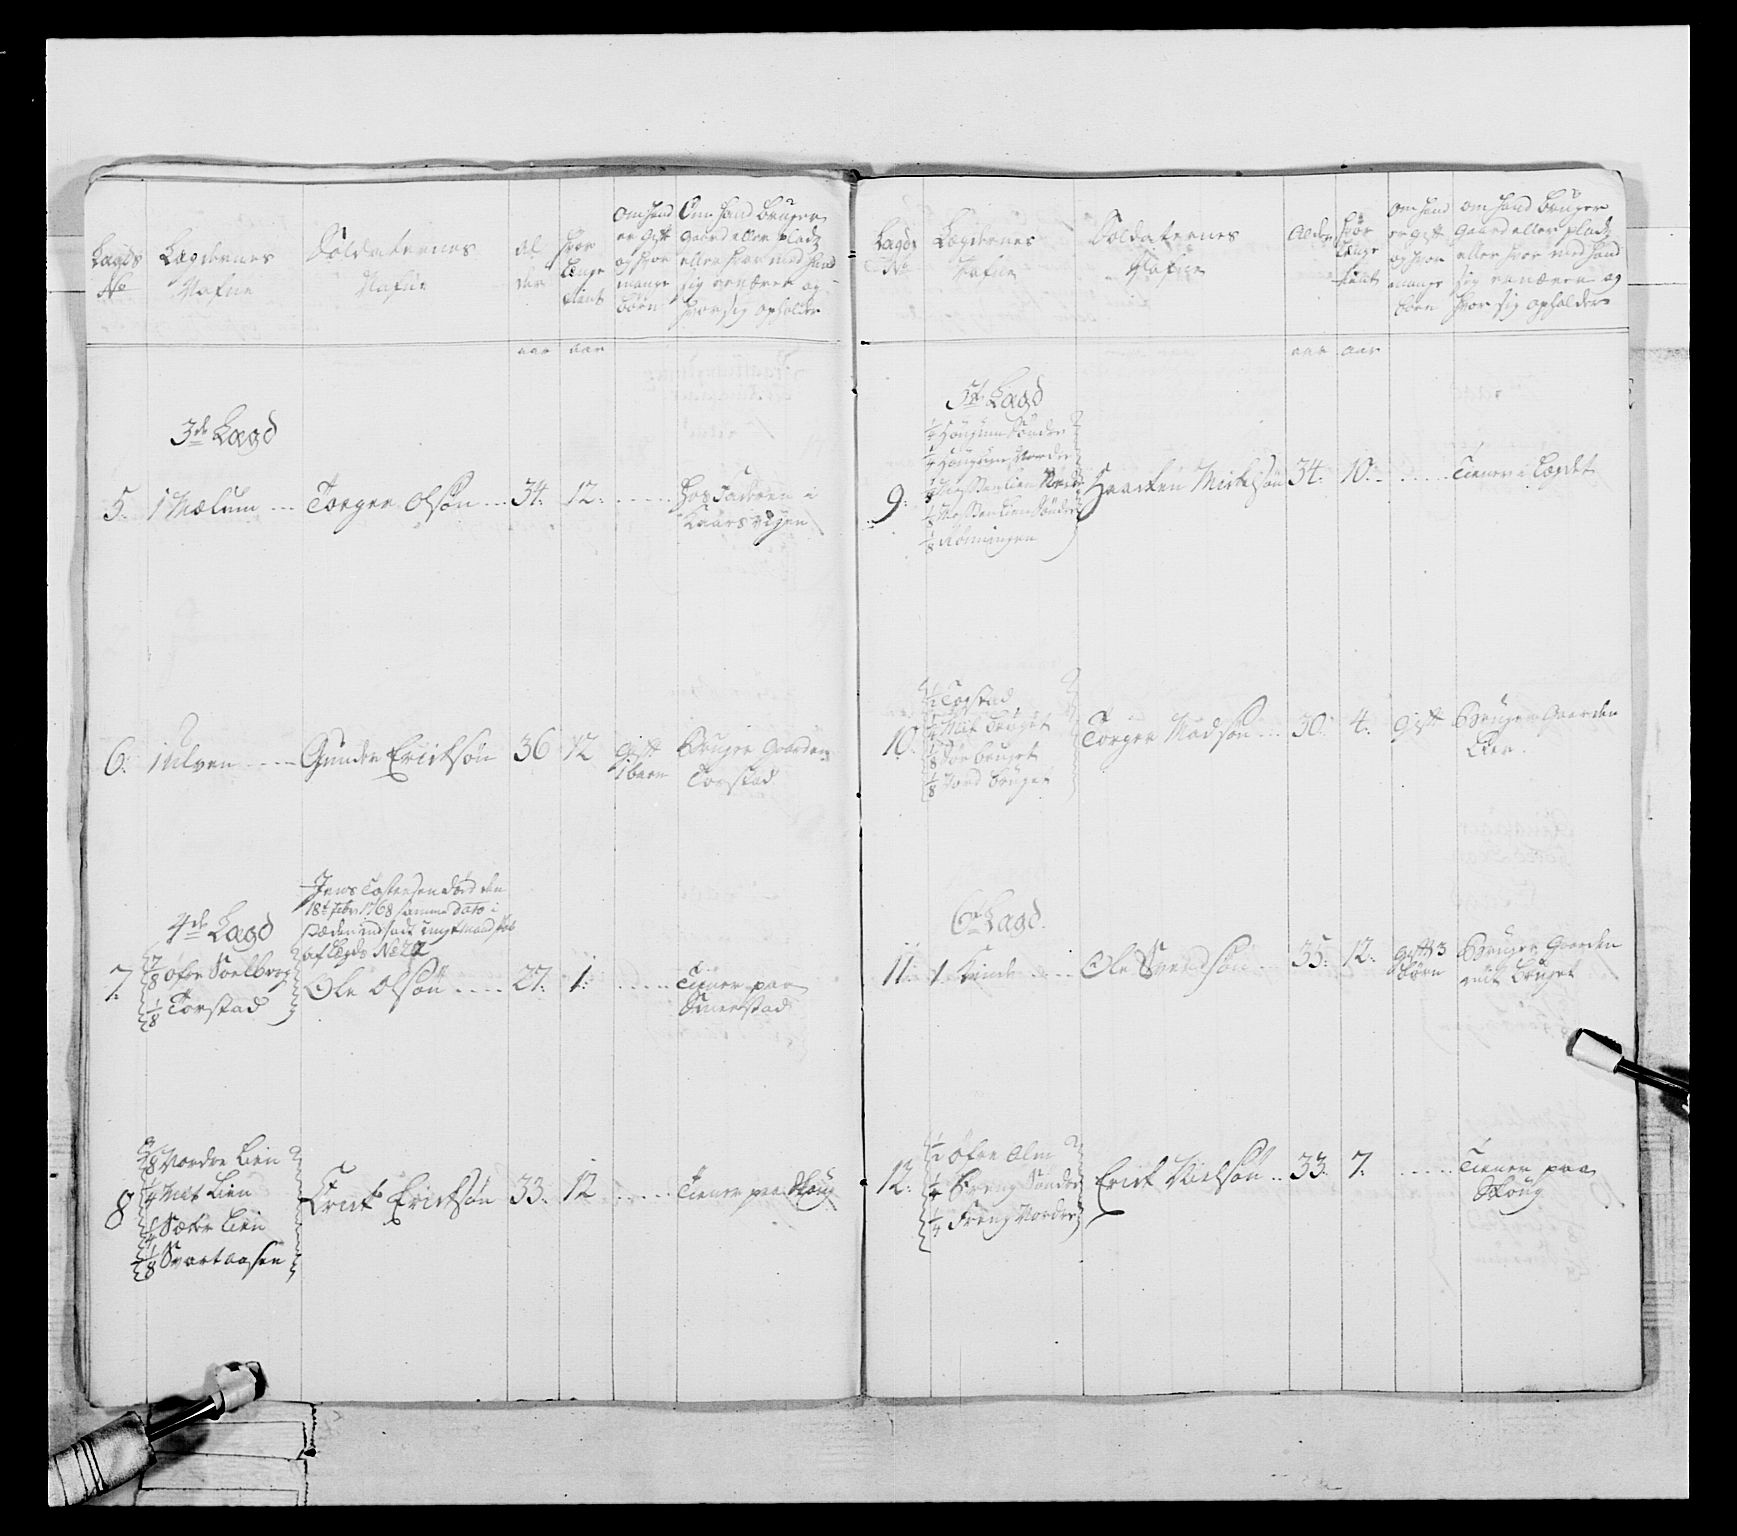 Lagds No
Lagdernes Nafne
Soldaternes Nafne
al der
hvor længe tient
om hand er gift og hvor mange børn
Om hand bruger gaard eller pladz eller hvor med hand sig ernærer og hvor sig opholder
aar aar
3de Lagd
5. 1 Mælum Torger Olsøn 34. 12. hos Faderen i
6. 1 Ulven Gunder Erichsøn 36 12 gift 1 barn Bruger Gaarden Torstad
Jens Tostensen død den
18 febr 1768 samme dato i
stæden indsadt
af Legds No
4de Lagd
7. 7/8 øfre Soelberg
1/8 Torstad
Ole Olsøn 27. 1. Tiener paa
Smerstad
8 3/8 Nordre Lien
1/4 Mit Lien
1/4 Søfre Lien
1/8 Svartaasen
Erick Ericksøn 33. 12 Tiener paa Skoug
Lagds No
Lægdernes Nafne
Soldaternes Nafne
Alder
hvor længe tient
om hand er gift og hvor mange børn
om hand bruger gaard eller pladz eller hvor med hand sig ernærer og hvor sig opholder
aar aar
5te Lagd
1/4 Søndre
1/4 Nordre
1/8 Nordre
1/8 Søndre
1/8 Rønningen
9. Haacken Mickelsøn 34. 10. Tiener i Lægdet
10. 1/2 Torstad
1/4 Mit bruget
1/8 Sør bruget
1/8 Nord bruget
Torger Madsøn 30. 4. gift Bruger Gaarden
Lien.
6te Lagd.
11. 1 Ole Svendsøn 35. 12. gift 3 børn Bruger Gaarden
mit bruget
12. 1/2 Øfre Alm
1/4 Freng Søndre
1/4 Freng Nordre
Erick Nielsøn 33. 7. Tiener paa
Skoug